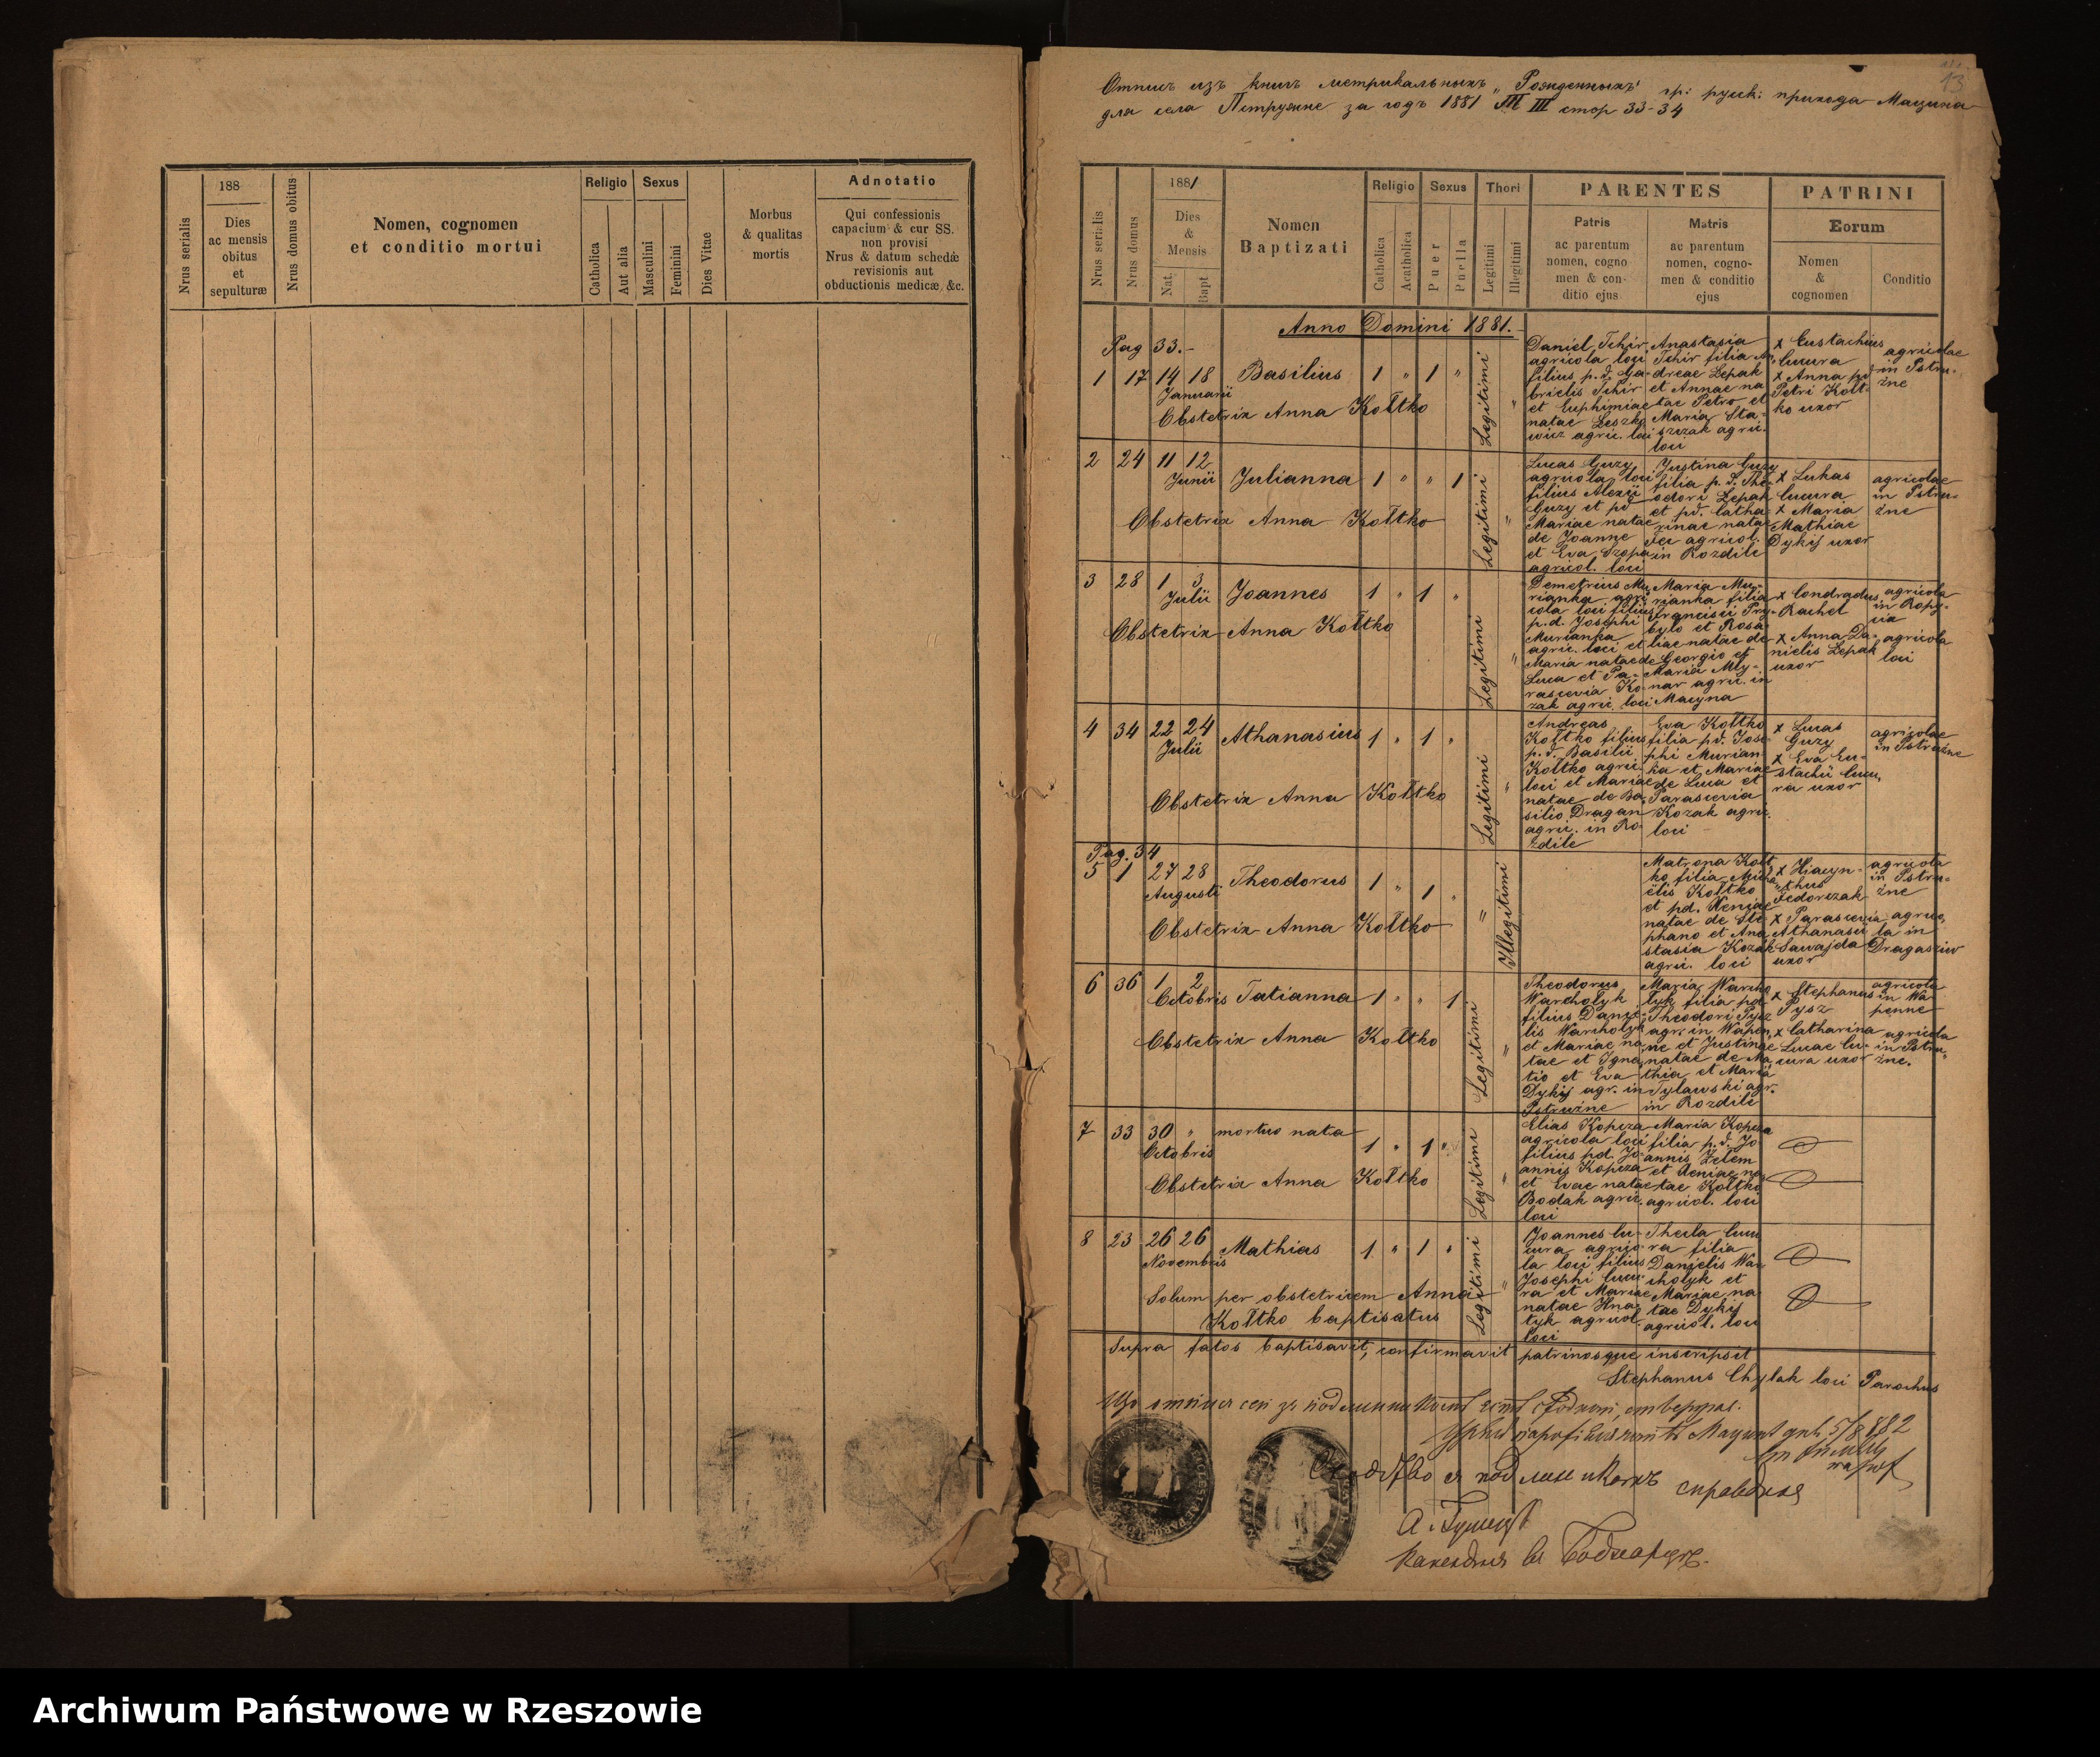 188
Religio
Sexus
Adnotatio
Nrus serialis
Dies
ac mensis
obitus
et
sepulturæ
Nrus domus obitus
Nomen, cognomen
et conditio mortui
Catholica
Aut alia
Masculini
Feminini
Dies Vitae
Morbus
& qualitas
mortis
Qui confessionis
capacium & cur SS.
non provisi
Nrus & datum schedæ
revisionis aut
obductionis medicæ, &c.
13
Отпись изъ книгъ метрикальныхъ „Рожденныхъ" гр: руск: прихода Мацина
для села Пстружне за годъ 1881 III стор 33-34
Nrus serialis
Nrus domus
1881
Dies
&
Mensis
Nat.
Bapt
Nomen
Baptizati
Religio
Sexus
Thori
Catholica
Acatholica
Puer
Puella
Legitimi
Illegitimi
PARENTES
Patris
ac parentum
nomen, cogno
men & con-
ditio ejus
Matris
ac parentum
nomen, cogno-
men & conditio
ejus
PATRINI
Eorum
Nomen
&
cognomen
Conditio
Anno Domini 1881.
Pag 33.-
1 17 14 18 Basilius 1 " 1 "
Januarii
Obstetrix Anna Kołtko
Legitimi
Daniel Tchir
agricola loci
filius p.d. Ga-
brielis Tchir
et Euphimiae
natae Leszko
wicz agric. loci
Anastasia
Tchir filia An
dreae Łepak
et Annae na
tae Petro et
Maria Sta-
szczak agric.
loci
x Eustachius
Cucura
x Anna pd
Petri Kołt-
ko uxor
agricolae
in Pstru-
żne
2 24 11 12 Julianna 1 " " 1
Junii
Obstetrix Anna Kołtko
Legitimi
Lucas Guzy
agricola loci
filius Alexii
Guzy et pd
Mariae natae
de Joanne
et Eva Szopa
agricol. loci
Justina Guzy
filia p.d. The-
odori Łepak
et pd. Catha-
rinae natae
Fec agricol.
in Rozdile
x Lukas
Cucura
x Maria
Mathiae
Dykij uxor
agricolae
in Pstru-
żne
3 28 1 3 Joannes 1 " 1 "
Julii
Obstetrix Anna Kołtko
Legitimi
Demetrius Mu
rianka agri
cola loci filius
p.d. Josephi
Murianka
agric. loci et
Maria natae de
Luca et Pa-
rascevia Ko-
zak agric. loci
Maria Mu-
rianka filia
Francisci Pry-
bylo et Rosa-
liae natae de
Georgio et
Maria Mły-
nar agric. in
Macyna
x Condradus
Rachel
x Anna Da-
nielis Łepak
uxor
agricola
in Ropi-
cia
agricola
loci
4 34 22 24 Athanasius 1 " 1 "
Julii
Obstetrix Anna Kołtko
Legitimi
Andreas
Kołtko filius
p.d. Basilii
Kołtko agric.
loci et Mariae
natae de Ba-
silio Dragan
agric. in Ro-
zdile
Eva Kołtko
filia pd. Jose-
phi Murian-
ka et Mariae
de Luca et
Parascevia
Kozak agric.
loci
x Lucas
Guzy
x Eva Eu-
stachii Cucu
ra uxor
agricolae
in Pstrużne
Pag. 34
5 1 27 28 Theodorus 1 " 1 "
Augusti
Obstetrix Anna Kołtko
Illegitimi
Matrona Kołt
ko filia Micha
ëlis Kołtko
et pd. Xeniae
natae de Ste-
phano et Ana
stasia Kozak
agric. loci
x Hiacyn-
thus
Fedorczak
x Parascevia
Athanasii
Sawajda
uxor
agricola
in Pstru-
żne
agrico
la in
Dragaszów
6 36 1 2 Tatianna 1 " " 1
Octobris
Obstetrix Anna Kołtko
Legitimi
Theodorus
Warchołyk
filius Danye-
lis Warchołyk
et Mariae na
tae et Igna
tio et Eva
Dykij agr. in
Pstrużne
Maria Warcho
łyk filia pd.
Theodori Pysz
agr. in Wapen
ne et Justinae
natae de Ma
thia et Maria
Tylawski agr.
in Rozdile
x Stephanus
Pysz
x Catharina
Lucae Cu-
cura uxor
agricola
in Wa
penne
agricola
in Pstru
żne.
7 33 30 " mortuo nata 1 " 1 "
Octobris
Obstetrix Anna Kołtko
Legitimi
Elias Kopcza
agricola loci
filius pd. Jo-
annis Kopcza
et Evae natae
Bodak agric.
loci
Maria Kopcza
filia p.d. Jo-
annis Zelem
et Xeniae na
tae Kołtko
agricol. loci
8 23 26 26 Mathias 1 " 1 "
Novembris
Solum per obstetricem Anna
Kołtko baptisatus
Legitimi
Joannes Cu-
cura agrico
la loci filius
Josephi Cucu
ra et Mariae
natae Hna
tyk agricol
loci
Thecla Cucu
ra filia
Danielis War
chołyk et
Mariae na
tae Dykij
agricol. loci
Supra fatos baptisavit, confirmavit patrinosque inscripsit
Stephanus Chylak loci Parochus
5/8 882
А.
Archiwum Państwowe w Rzeszowie